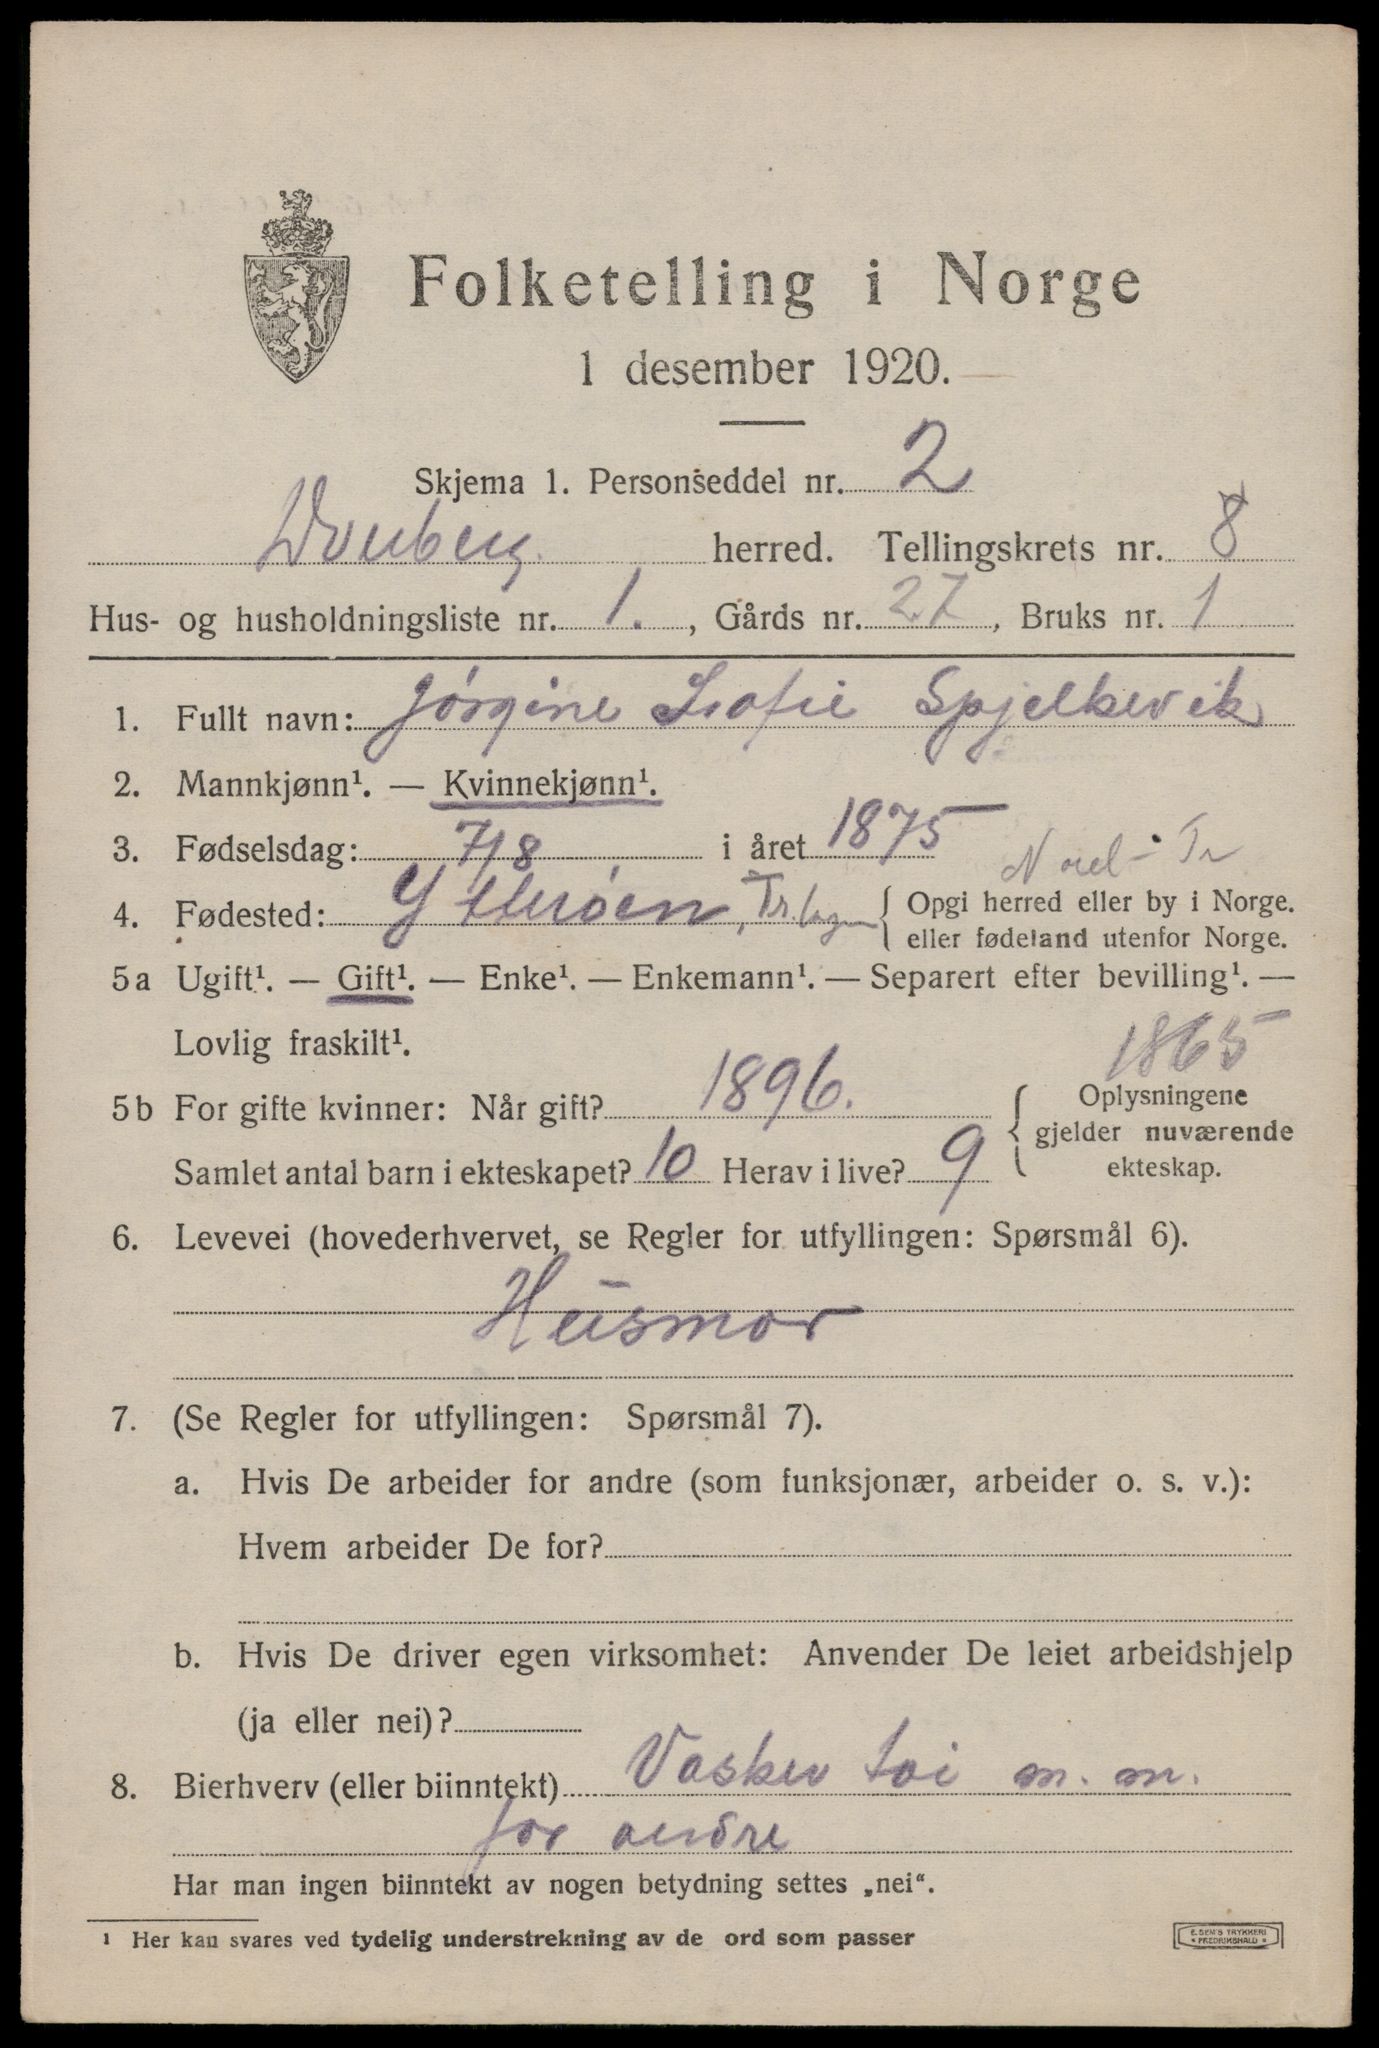 Folketelling i Norge
1 desember 1920.
Skjema 1. Personseddel nr. 2
herred. Tellingskrets nr. 8
Hus- og husholdningsliste nr. 1. , Gårds nr. 27, Bruks nr. 1
1. Fullt navn: Jørgine Sofie Spjelkevik
2. Mannkjønn¹. — Kvinnekjønn¹.
3. Fødselsdag: 7/8 i året 1875
Nord-Tr
4. Fødested: Ytterøen, { Opgi herred eller by i Norge.
eller fødeland utenfor Norge.
5a Ugift¹. — Gift¹. — Enke¹. — Enkemann¹. — Separert efter bevilling¹. —
Lovlig fraskilt¹.
1865
5b For gifte kvinner: Når gift? 1896. { Oplysningene
gjelder nuværende
Samlet antal barn i ekteskapet? 10 Herav i live? 9 ekteskap.
6. Levevei (hovederhvervet, se Regler for utfyllingen: Spørsmål 6).
Husmor
7. (Se Regler for utfyllingen: Spørsmål 7).
a. Hvis De arbeider for andre (som funksjonær, arbeider o. s. v.):
Hvem arbeider De for?
b. Hvis De driver egen virksomhet: Anvender De leiet arbeidshjelp
(ja eller nei)?
8. Bierhverv (eller biinntekt) Vasker toi m. m.
for andre
Har man ingen biinntekt av nogen betydning settes „nei“.
¹ Her kan svares ved tydelig understrekning av de ord som passer
E. SEM'S TRYKKERI
* FREDRIKSHALD *